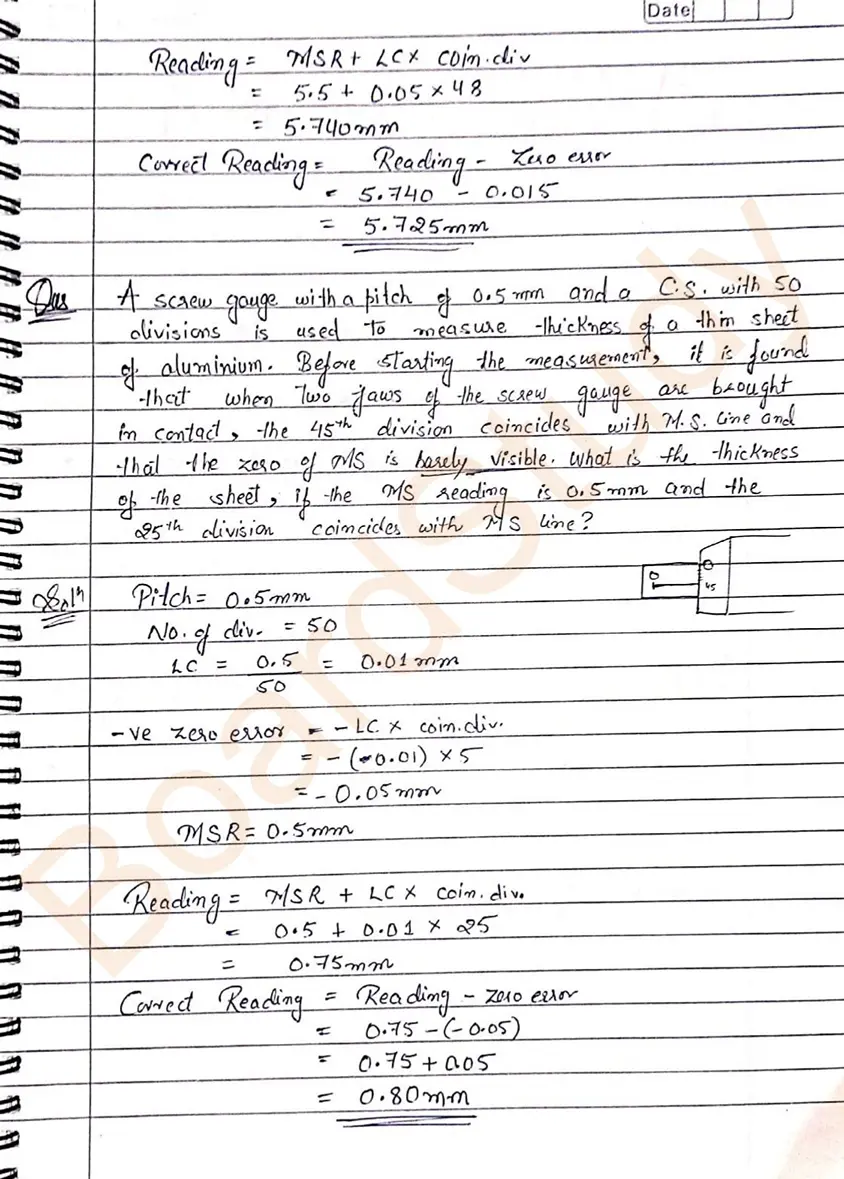 Date
Reading = MSR + LC × coin.div
= 5.5 + 0.05 × 48
= 5.740mm
Correct Reading = Reading - Zero error
= 5.740 - 0.015
= 5.725mm
Ques A screw gauge with a pitch of 0.5 mm and a C.S. with 50
divisions is used to measure thickness of a thin sheet
of aluminium. Before starting the measurement, it is found
that when two jaws of the screw gauge are brought
in contact, the 45th division coincides with M.S. line and
that the zero of MS is barely visible. What is the thickness
of the sheet, if the MS reading is 0.5mm and the
25th division coincides with MS line?
0
0
45
Solⁿ Pitch = 0.5mm
No. of div. = 50
LC = 0.5 = 0.01 mm
50
-ve zero error = - LC × coin.div.
= - (-0.01) × 5
= - 0.05mm
MSR = 0.5mm
Reading = MSR + LC × coin.div.
= 0.5 + 0.01 × 25
= 0.75mm
Correct Reading = Reading - zero error
= 0.75 - (-0.05)
= 0.75 + 0.05
= 0.80mm
BoardStudy